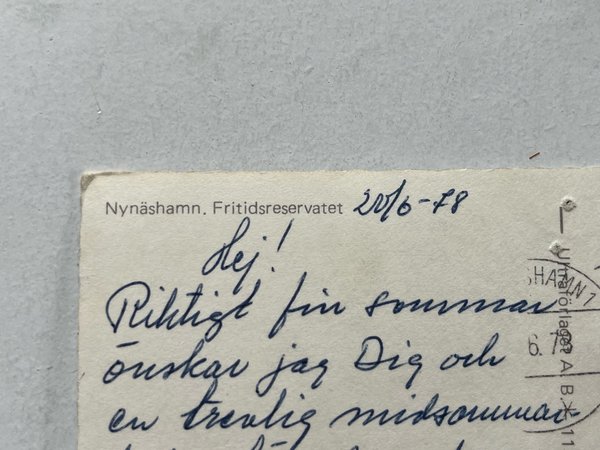 Nynäshamn. Fritidsreservatet 20/6-78
Hej!
Riktigt fin sommar
önskar jag Dig och
en trevlig midsommar-
SHAMN 1
6.78
A.B.